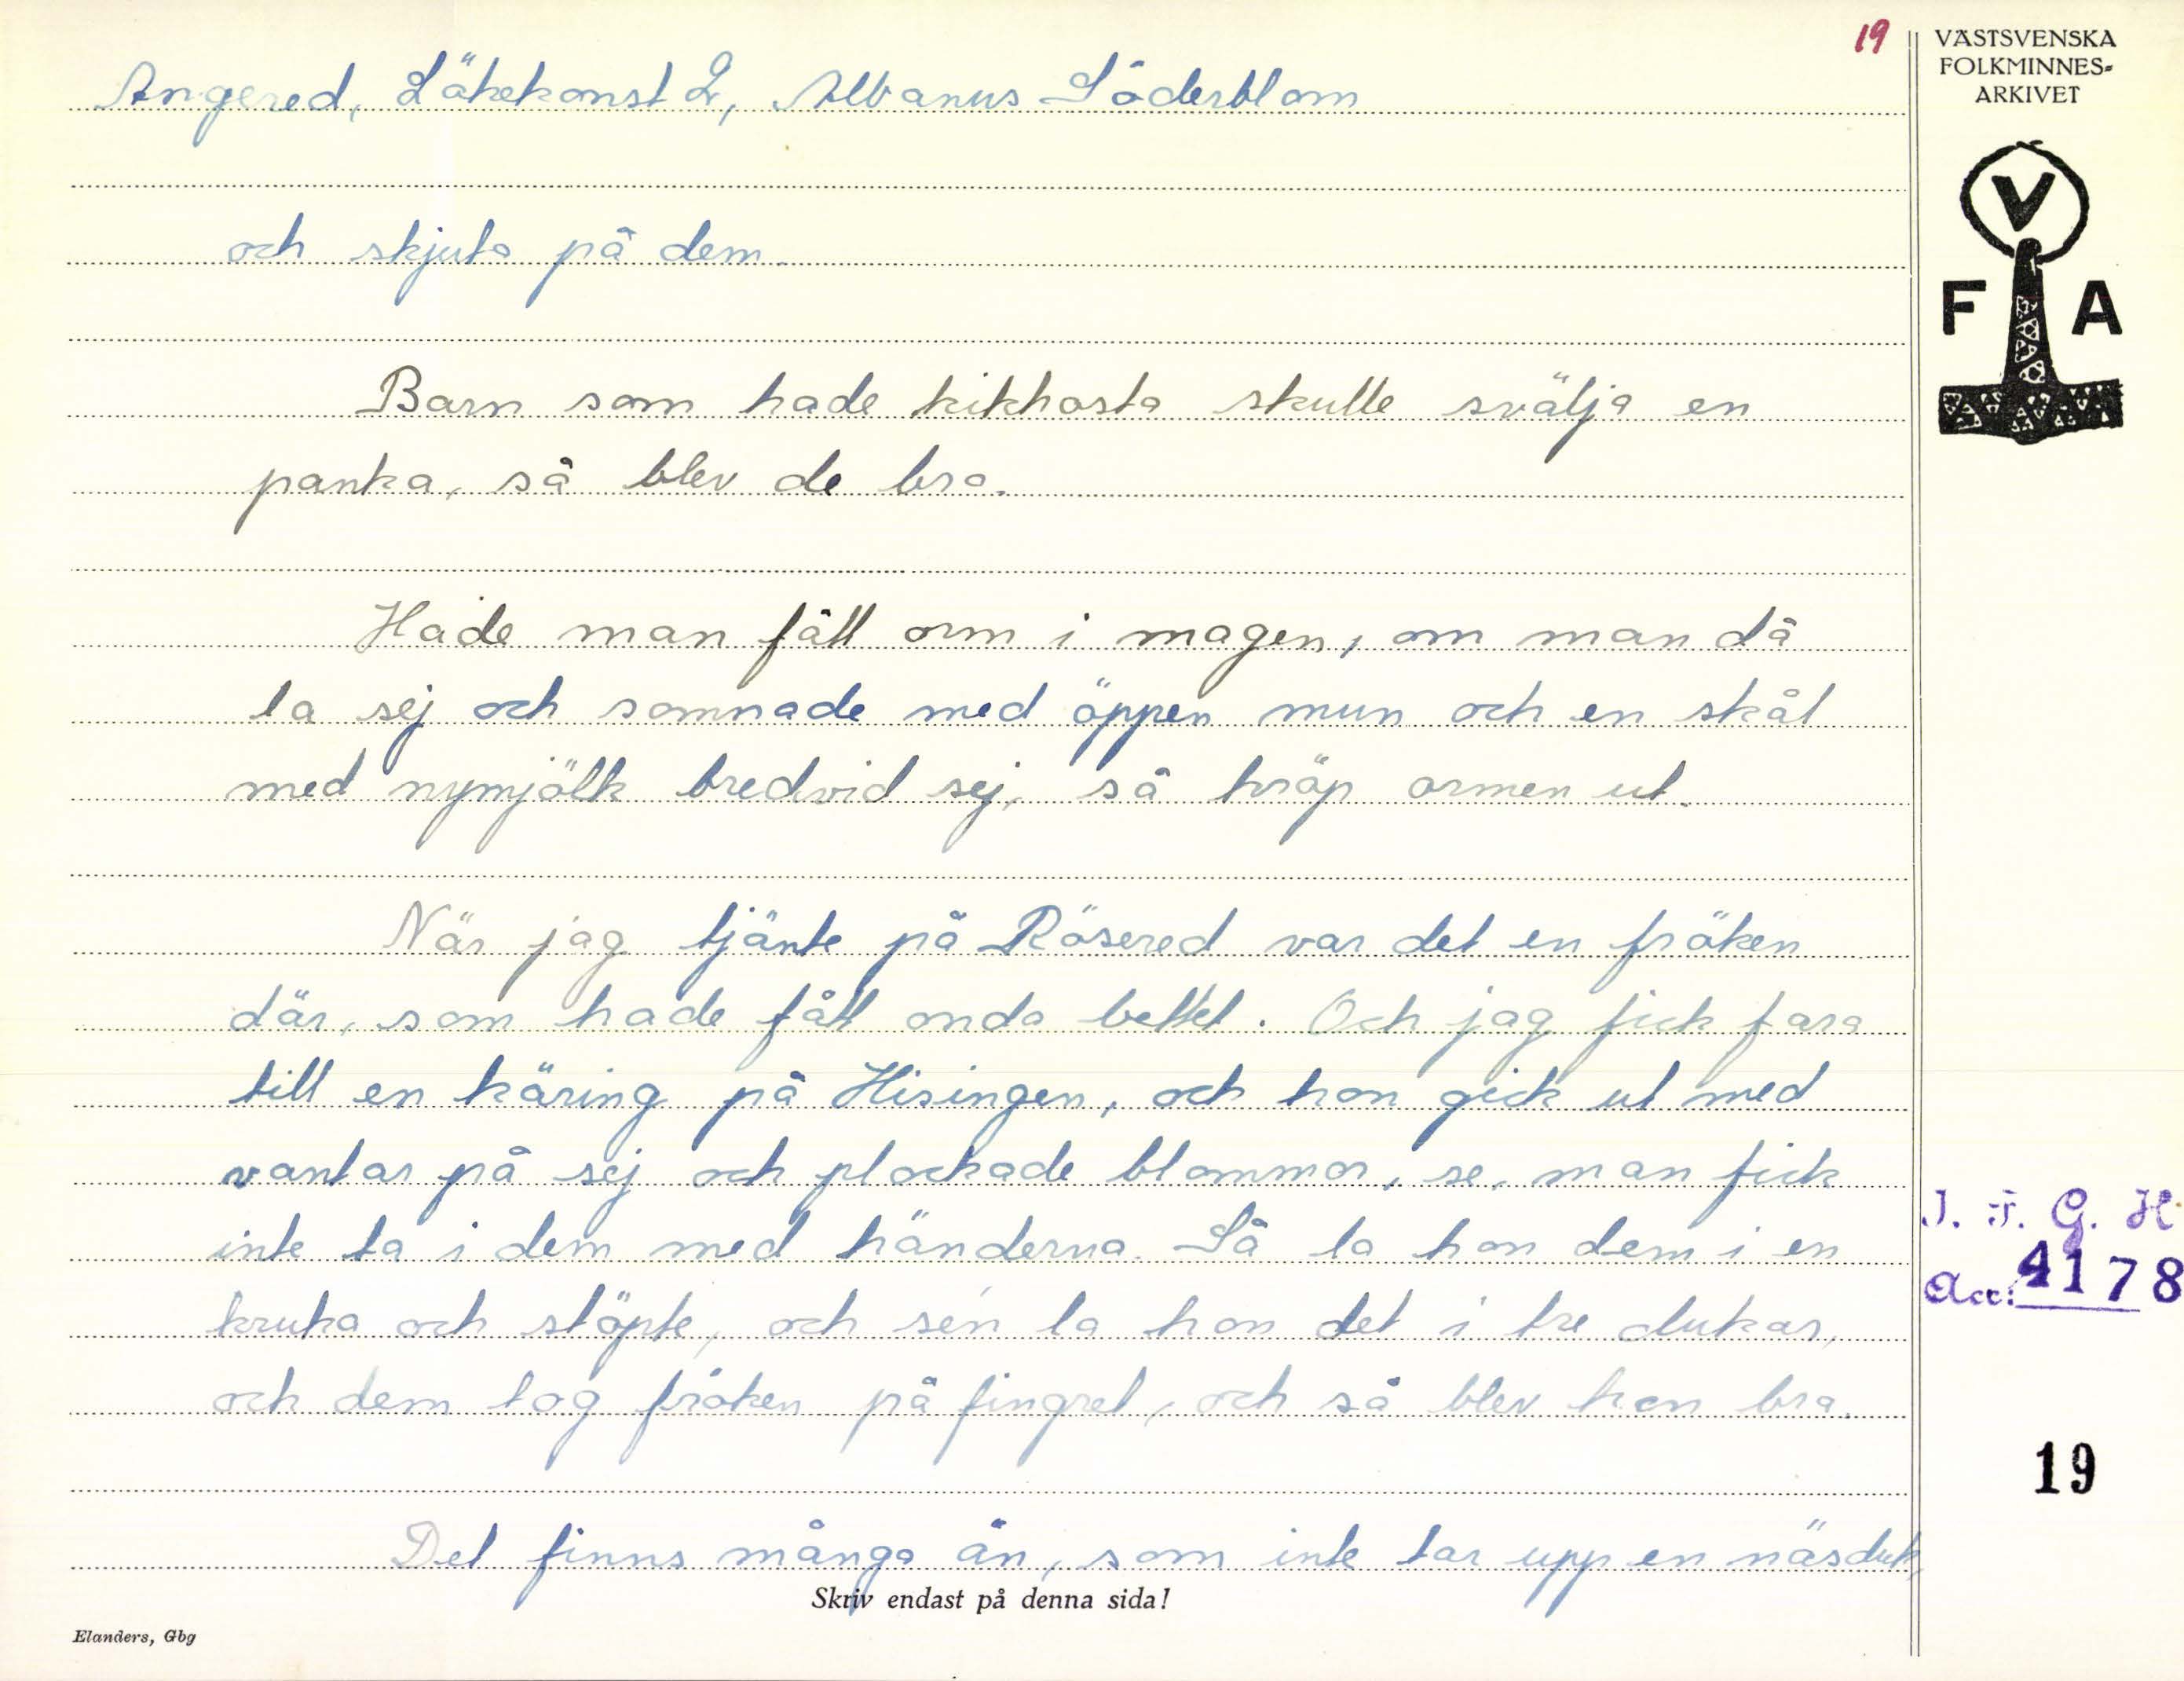 19
Angered, Läkekonst 2, Albanus Söderblom
och skjuta på dem.
Barn som hade kikhosta skulle svälja en
panka, så blev de bra.
Hade man fått orm i magen, om man då
la sej och somnade med öppen mun och en skål
med nymjölk bredvid sej, så kröp ormen ut.
När jag tjänte på Rösered var det en fröken
där, som hade fått onda bettet. Och jag fick fara
till en käring på Hisingen, och hon gick ut med
vantar på sej och plockade blommor, se, man fick
inte ta i dem med händerna. Så la hon dem i en
kruka och stöpte, och sén la hon det i tre dukar,
och dem tog fröken på fingret, och så blev hon bra.
Det finns många än, som inte tar upp en näsduk,
Skriv endast på denna sida!
Elanders, Gbg
VÄSTSVENSKA
FOLKMINNES-
ARKIVET
V
F A
I. F. G. H.
Acc. 4178
19